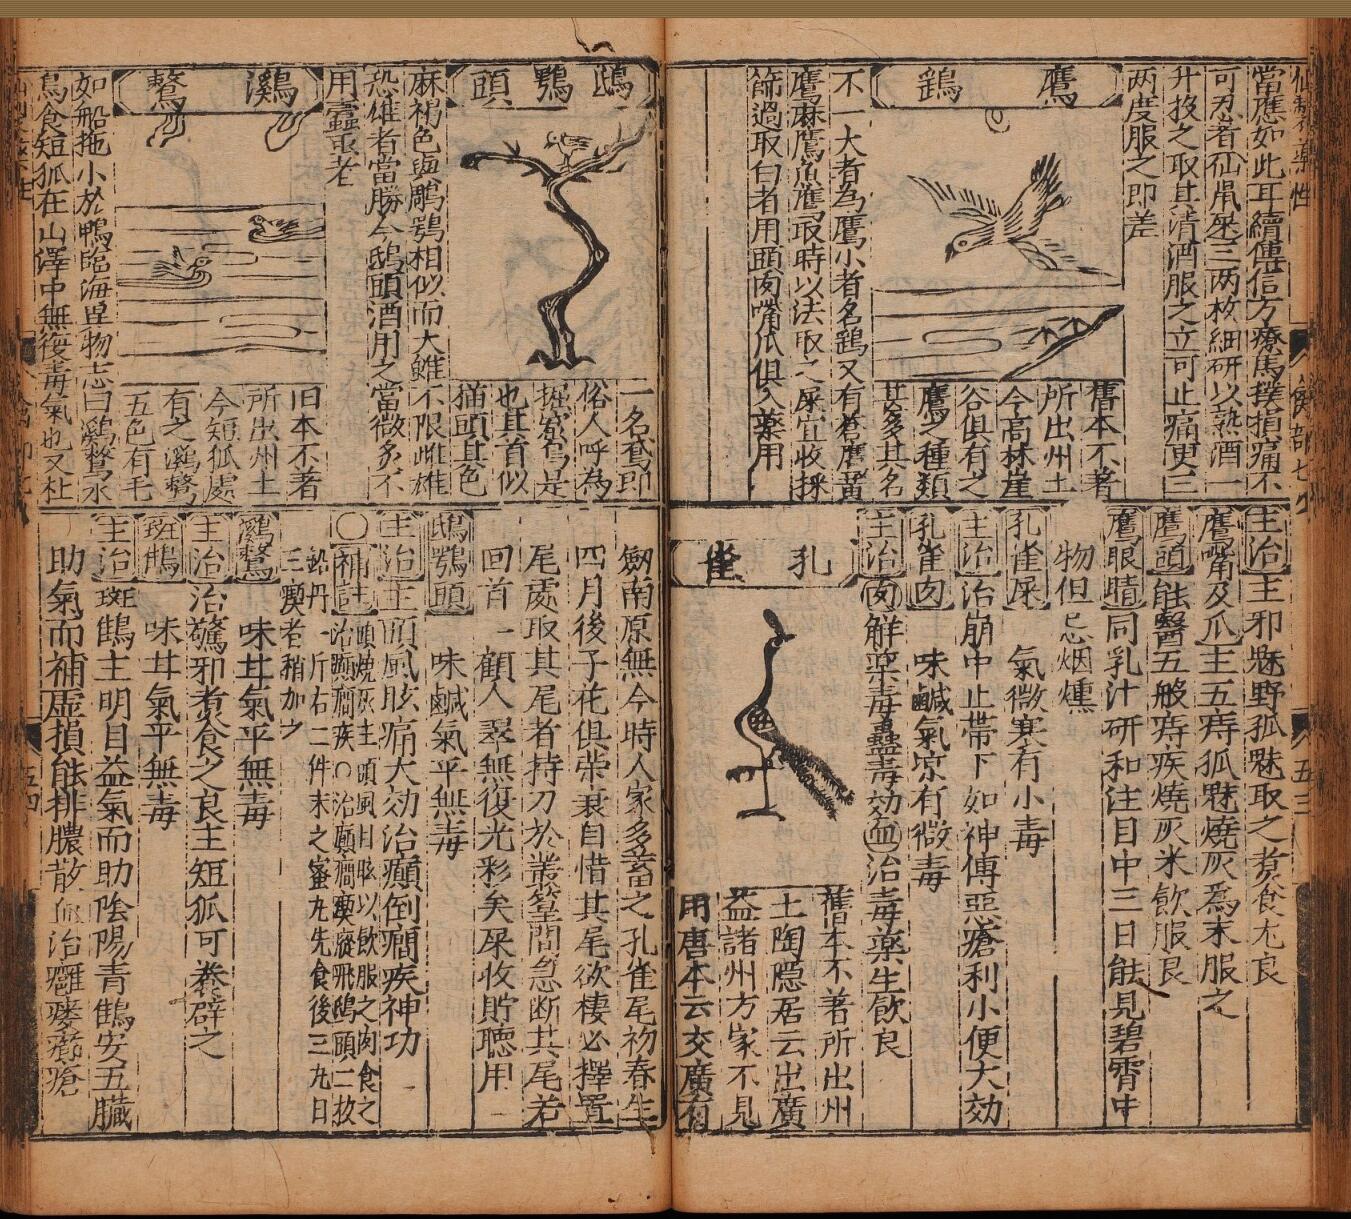 當應如此耳續傳信方療馬撲損痛不
可忍者仙鼠屎三两枚細研以熱酒一
升投之取其清酒服之立可止痛更三
两度服之即差
鷹 鷂
舊本不著
所出州土
今高林崖
谷俱有之
鷹之種類
甚多其名
不一大者為鷹小者名鷂又有蒼鷹黃
鷹麻鷹魚鷹取時以法取之屎宜收採
篩過取白者用頭肉嘴爪俱入藥用
主治主邪魅野狐魅取之煑食尤良
鷹嘴及爪主五痔狐魅燒灰為末服之
鷹頭能醫五般痔疾燒灰米飲服良
鷹眼睛同乳汁研和注目中三日能見碧霄中
物但忌烟燻
孔雀屎 氣微寒有小毒
主治治崩中止帶下如神傳惡瘡利小便大効
孔雀肉 味鹹氣凉有微毒
主治肉解藥毒蠱毒効血治毒藥生飲良
孔雀
舊本不著所出州
土陶隱居云出廣
益諸州方家不見
用唐本云交廣有
鴟鴞頭
一名鳶即
俗人呼為
也其首似
猫頭其色
麻褐色與鵰鴞相似而大雖不限雌雄
恐雄者當勝今鴟頭酒用之當微炙不
用蠹䖝者
鸂鷘
旧本不著
所出州土
今短狐處
有之鸂鷘
五色有毛
如船拖小於鴨臨海異物志曰鸂鷘水
鳥食短狐在山澤中無復毒氣也又杜
劒南原無今時人家多蓄之孔雀尾初春生
四月後子花俱榮衰自惜其尾欲棲必擇置
尾處取其尾者持刀於叢篁間急断其尾若
回首一顧人翠無復光彩矣屎收貯聴用
鴟鴞頭 味鹹氣平無毒
主治主頭風眩痛大効治癲倒癇疾神功
〇補註頭燒灰主頭風目眩以飲服之肉食之
治癲癇疾〇治癲癇瘈瘲飛鴟頭二枚
鈆丹一斤右二件末之蜜丸先食後三丸日
三瘈者稍加之
鸂鷘 味甘氣平無毒
主治治驚邪煑食之良主短狐可養辟之
斑鶴 味甘氣平無毒
主治斑鶴主明目益氣而助陰陽青鶴安五臟
助氣而補虛損能排膿散血治癰瘻瘡